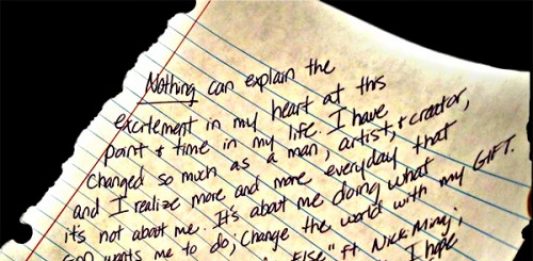 Nothing can explain the
excitement in my heart at this
point & time in my life. I have
changed so much as a man, artist, & creator,
and I realize more and more everyday that
it's not about me. It's about me doing what
GOD wants me to do; Change the world with my GIFT.
Else" ft Nicki Minaj;
I hope